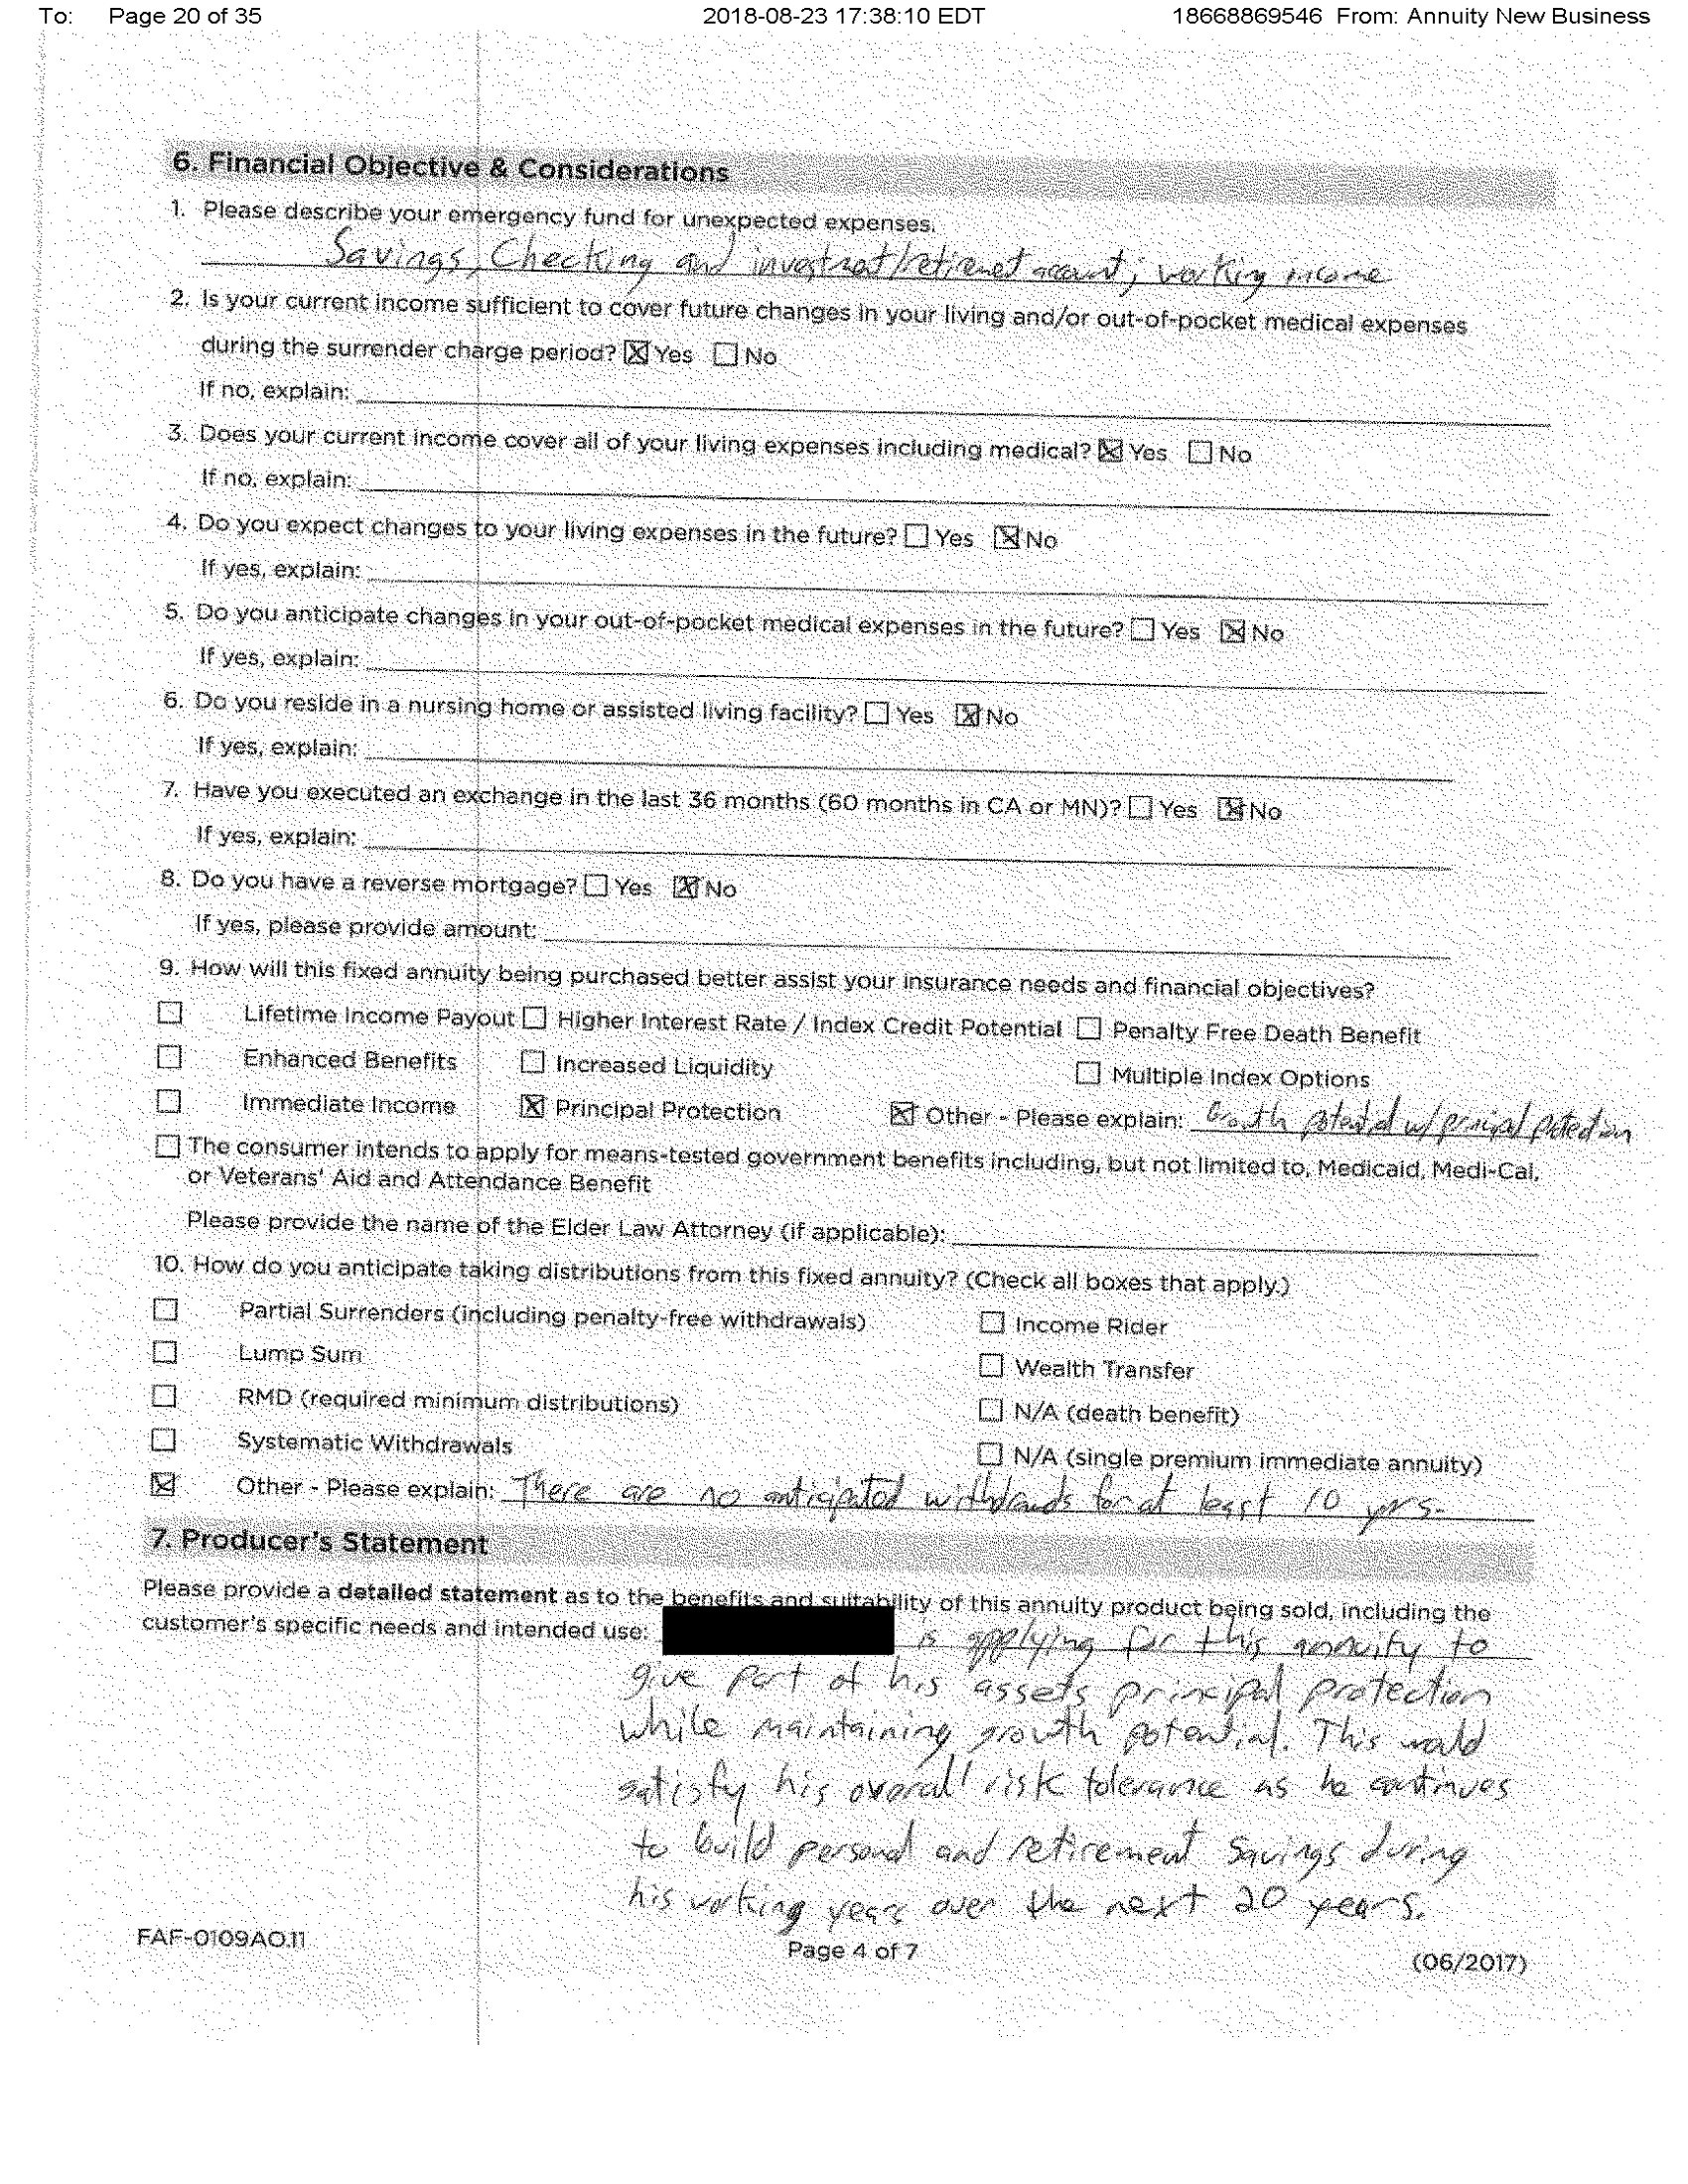 To: Page 20 of 35 2018-08-23 17:38:10 EDT 18668869546 From: Annuity New Business
6. Financial Objective & Considerations
1. Please describe your emergency fund for unexpected expenses.
Savings, Checking and investmet/retiremet account; working income
2. Is your current income sufficient to cover future changes in your living and/or out-of-pocket medical expenses
during the surrender charge period? ☒ Yes ☐ No
If no, explain:
3. Does your current income cover all of your living expenses including medical? ☒ Yes ☐ No
If no, explain:
4. Do you expect changes to your living expenses in the future? ☐ Yes ☒ No
If yes, explain:
5. Do you anticipate changes in your out-of-pocket medical expenses in the future? ☐ Yes ☒ No
If yes, explain:
6. Do you reside in a nursing home or assisted living facility? ☐ Yes ☒ No
If yes, explain:
7. Have you executed an exchange in the last 36 months (60 months in CA or MN)? ☐ Yes ☒ No
If yes, explain:
8. Do you have a reverse mortgage? ☐ Yes ☒ No
If yes, please provide amount:
9. How will this fixed annuity being purchased better assist your insurance needs and financial objectives?
☐ Lifetime Income Payout ☐ Higher Interest Rate / Index Credit Potential ☐ Penalty Free Death Benefit
☐ Enhanced Benefits ☐ Increased Liquidity ☐ Multiple Index Options
☐ Immediate Income ☒ Principal Protection ☒ Other - Please explain: Growth potential w/ principal protection
☐ The consumer intends to apply for means-tested government benefits including, but not limited to, Medicaid, Medi-Cal,
or Veterans' Aid and Attendance Benefit
Please provide the name of the Elder Law Attorney (if applicable):
10. How do you anticipate taking distributions from this fixed annuity? (Check all boxes that apply.)
☐ Partial Surrenders (including penalty-free withdrawals) ☐ Income Rider
☐ Lump Sum ☐ Wealth Transfer
☐ RMD (required minimum distributions) ☐ N/A (death benefit)
☐ Systematic Withdrawals ☐ N/A (single premium immediate annuity)
☒ Other - Please explain: There are no anticipated withdrawals for at least 10 yrs.
7. Producer's Statement
Please provide a detailed statement as to the benefits and suitability of this annuity product being sold, including the
customer's specific needs and intended use: is applying for this annuity to
give part of his assets principal protection
while maintaining growth potential. This would
satisfy his overall risk tolerance as he continues
to build personal and retirement savings during
his working years over the next 20 years.
FAF-0109AO.11 Page 4 of 7 (06/2017)